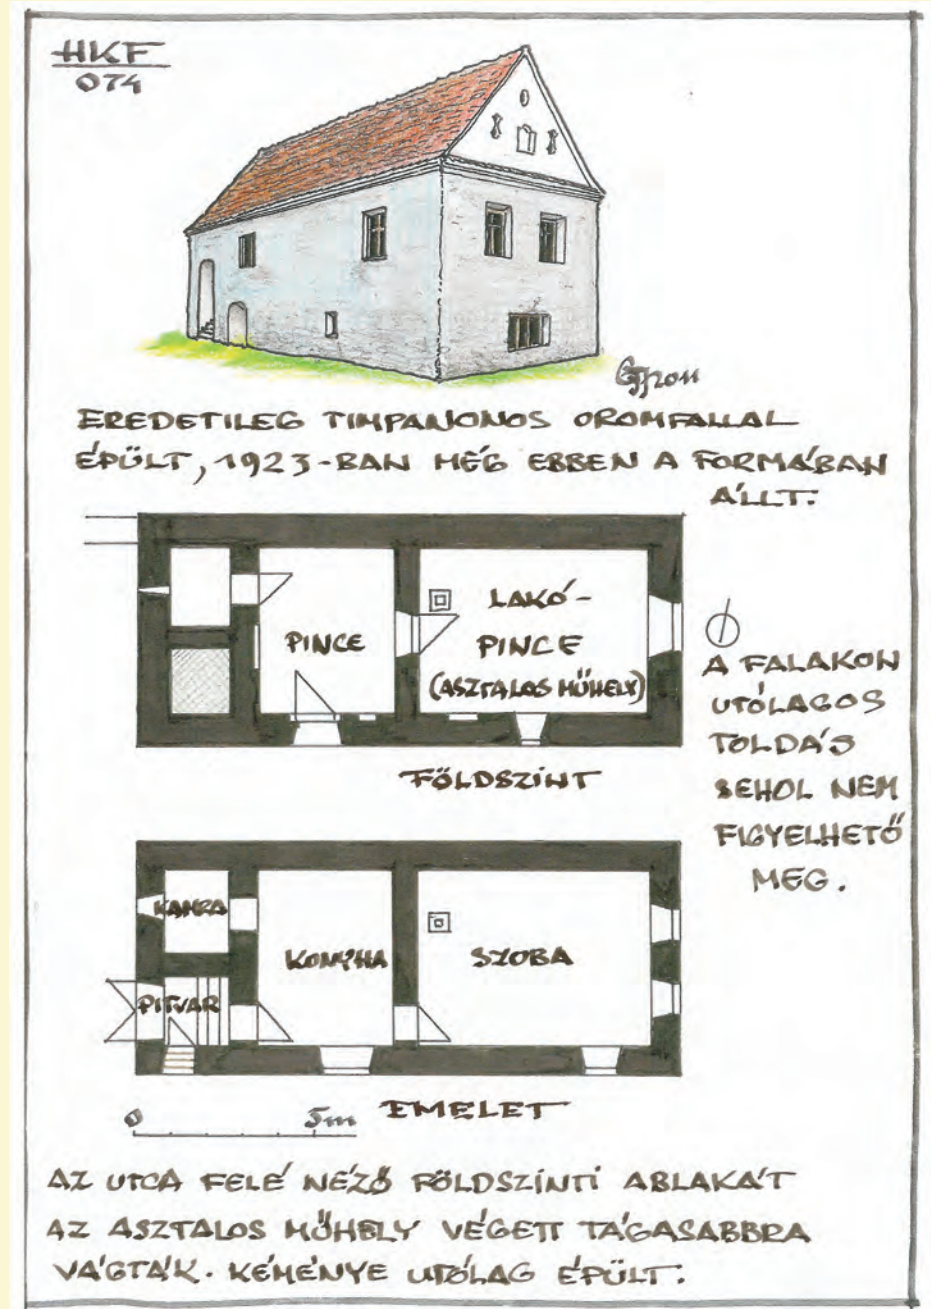 HKF
074
EREDETILEG TIMPANONOS OROMFALLAL
ÉPÜLT, 1923-BAN MÉG EBBEN A FORMÁBAN
ÁLLT.
PINCE
LAKÓ-
PINCE
(ASZTALOS MŰHELY)
FÖLDSZINT
A FALAKON
UTÓLAGOS
TOLDÁS
SEHOL NEM
FIGYELHETŐ
MEG.
KAMRA
PITVAR
KONYHA
SZOBA
EMELET
0 5m
AZ UTCA FELÉ NÉZŐ FÖLDSZINTI ABLAKÁT
AZ ASZTALOS MŰHELY VÉGETT TÁGASABBRA
VÁGTÁK. KÉMÉNYE UTÓLAG ÉPÜLT.